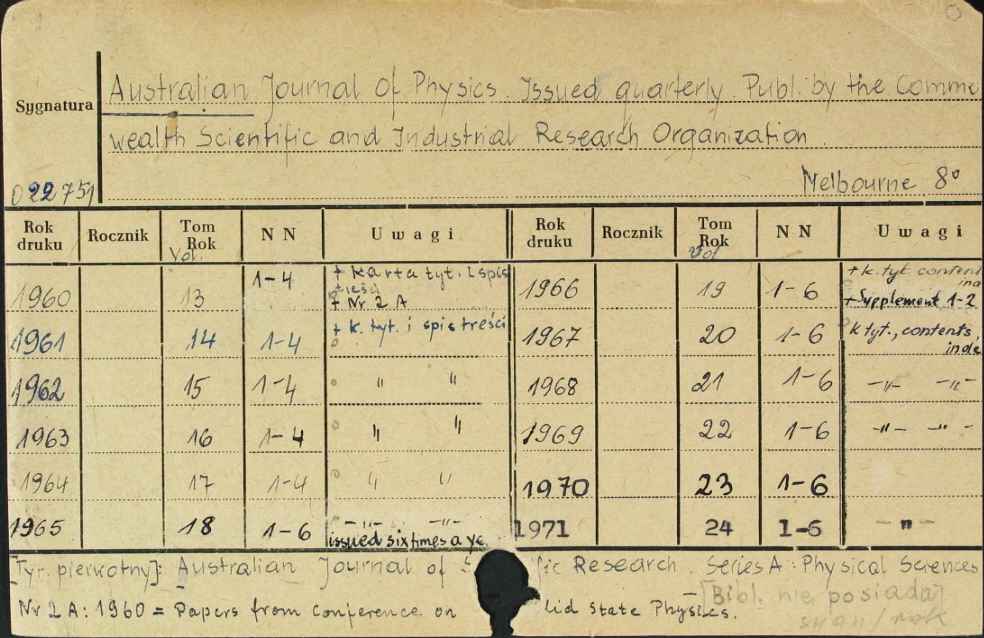 Sygnatura
Australian Journal of Physics. Issued quarterly. Publ. by the Commo
wealth Scientific and Industrial Research Organization.
022751
Melbourne 8°
Rok druku Rocznik Tom Rok Vol. NN Uwagi Rok druku Rocznik Tom Rok Vol NN Uwagi
1960 13 1-4 + karta tyt. i spis treści + Nr 2 A 1966 19 1-6 + k. tyt. content + Supplement 1-2
1961 14 1-4 + k. tyt. i spis treści 1967 20 1-6 k tyt., contents, inde
1962 15 1-4 " " 1968 21 1-6 -"- -"-
1963 16 1-4 " " 1969 22 1-6 -"- -"-
1964 17 1-4 " " 1970 23 1-6
1965 18 1-6 -"- -"- issued six times a ye. 1971 24 1-6 -"-
pierwotny]: Australian Journal of Research. Series A: Physical Sciences
Nr 2 A: 1960 = Papers from Conference on lid State Physics.
[Bibl. nie posiada]